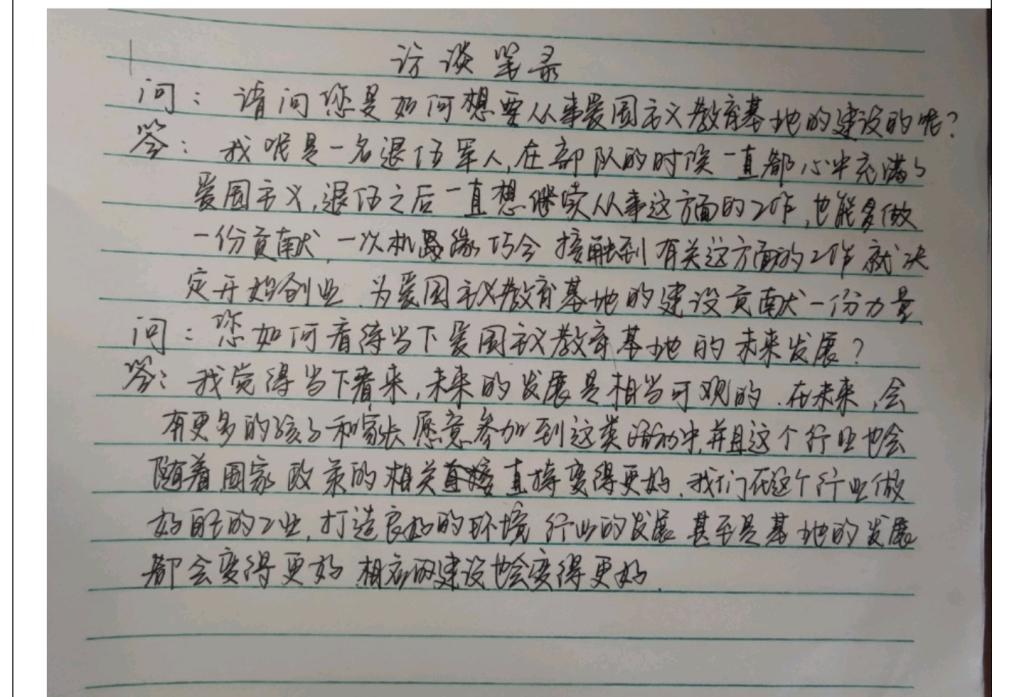 访谈笔录
问：请问您是如何想要从事爱国主义教育基地的建设的呢？
答：我呢是一名退伍军人，在部队的时候一直都心中充满了
爱国主义，退伍之后一直想继续从事这方面的工作，也能多做
一份贡献，一次机缘巧合接触到有关这方面的工作就决
定开始创业，为爱国主义教育基地的建设贡献一份力量
问：您如何看待当下爱国主义教育基地的未来发展？
答：我觉得当下看来，未来的发展是相当可观的．在未来，会
有更多的孩子和家长愿意参加到这类活动中，并且这个行业也会
随着国家政策的相关直接变得更好．我们在这个行业做
好的工业，打造良好的环境 行业的发展 甚至是基地的发展
都会变得更好 相应的建设也会变得更好．